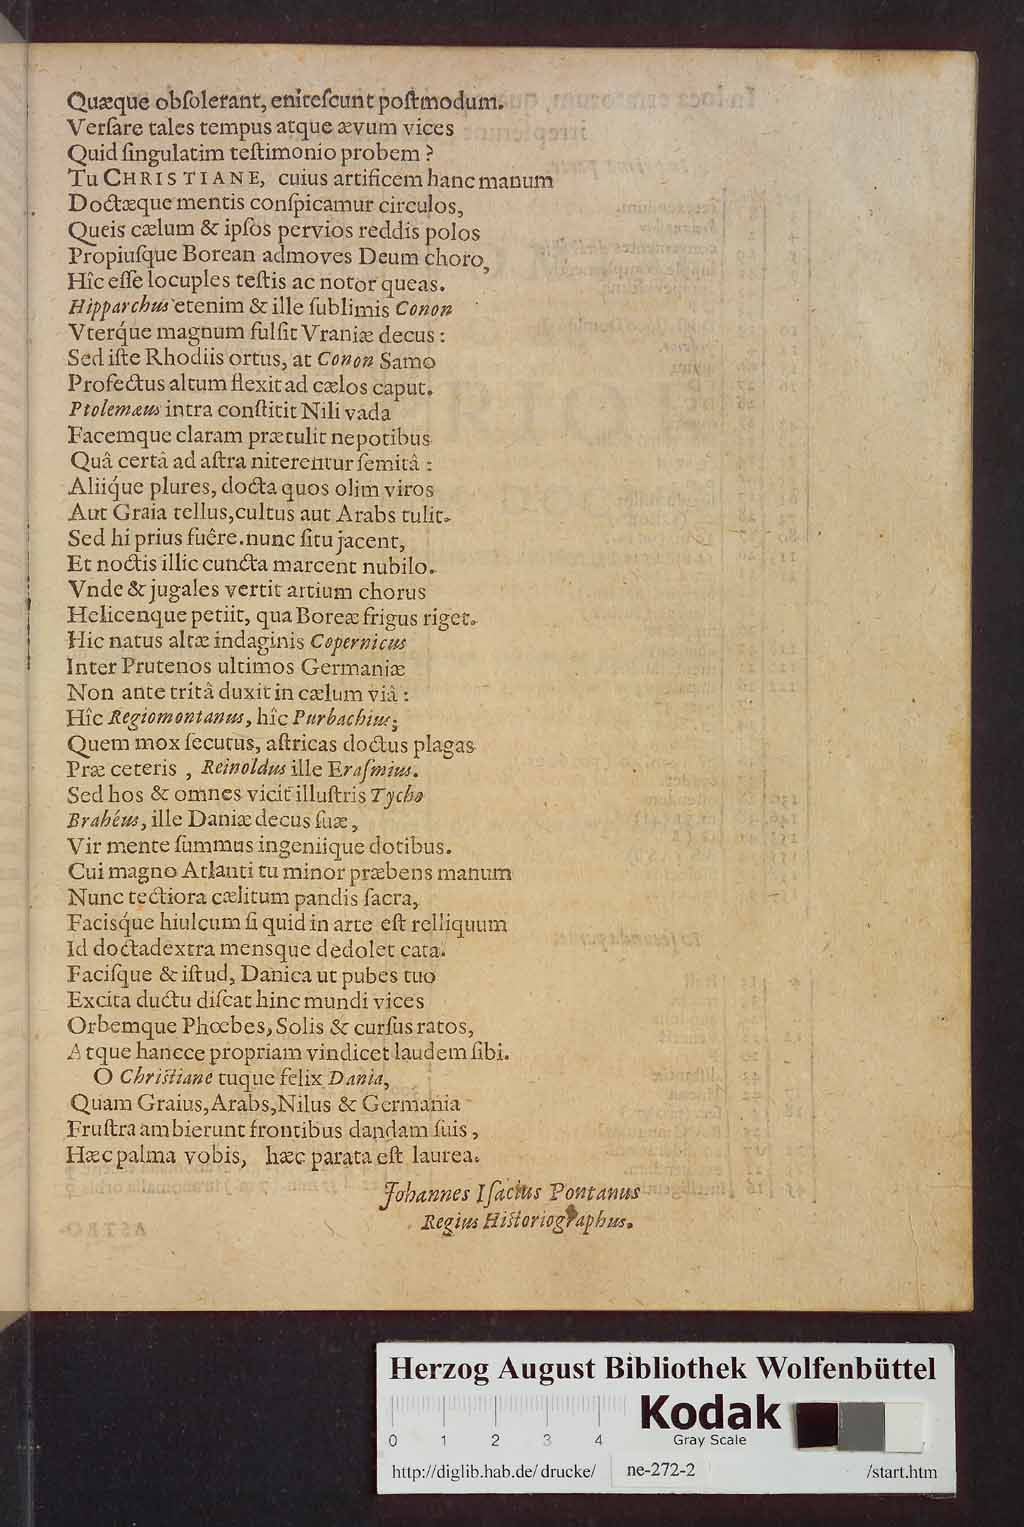 Quæque obſoleꝛant, eniteſcunt poſtmodum.
Verſare tales tempus atque ævum vices
Quid ſingulatim teſtimonio probem ?
Tu CHRISTIANE, cuius artificem hanc manum
Doctæque mentis conſpicamur circulos,
Queis cælum & ipſos pervios reddis polos
Propiuſque Borean admoves Deum choro,
Hîc eſſe locuples teſtis ac notor queas.
Hipparchus etenim & ille ſublimis Conon
Vterq́ue magnum fulſit Vraniæ decus :
Sed iſte Rhodiis ortus, at Conon Samo
Profectus altum flexit ad cælos caput.
Ptolemæus intra conſtitit Nili vada
Facemque claram prætulit nepotibus
Quâ certâ ad aſtra niterentur ſemitâ :
Aliiq́ue plures, docta quos olim viros
Aut Graia tellus, cultus aut Arabs tulit.
Sed hi prius fuêre. nunc ſitu jacent,
Et noctis illic cuncta marcent nubilo.
Vnde & jugales vertit artium chorus
Helicenque petiit, qua Boreæ frigus riget.
Hic natus altæ indaginis Copernicus
Inter Prutenos ultimos Germaniæ
Non ante tritâ duxit in cælum viâ :
Hîc Regiomontanus, hîc Purbachius;
Quem mox ſecutus, aſtricas doctus plagas
Præ ceteris , Reinoldus ille Eraſmius.
Sed hos & omnes vicit illuſtris Tycho
Brahéus, ille Daniæ decus ſuæ,
Vir mente ſummus ingeniique dotibus.
Cui magno Atlanti tu minor præbens manum
Nunc tectiora cælitum pandis ſacra,
Facisq́ue hiulcum ſi quid in arte eſt relliquum
Id docta dextra mensque dedolet cata.
Faciſque & iſtud, Danica ut pubes tuo
Excita ductu diſcat hinc mundi vices
Orbemque Phœbes, Solis & curſus ratos,
Atque hancce propriam vindicet laudem ſibi.
O Chriſtiane tuque felix Dania,
Quam Graius, Arabs, Nilus & Germania
Fruſtra ambierunt frontibus dandam ſuis,
Hæc palma vobis, hæc parata eſt laurea.
Johannes Iſacius Pontanus
Regius Hiſtoriographus.
Herzog August Bibliothek Wolfenbüttel
Kodak
Gray Scale
0 1 2 3 4
http://diglib.hab.de/drucke/ ne-272-2 /start.htm